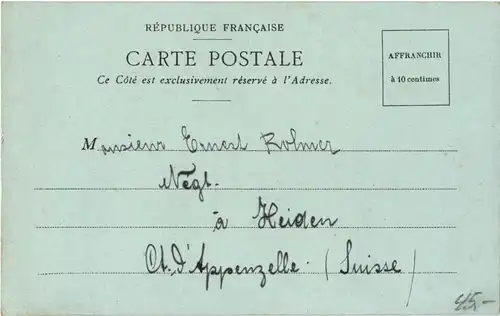 RÉPUBLIQUE FRANÇAISE
CARTE POSTALE
Ce Côté est exclusivement réservé à l'Adresse.
AFFRANCHIR
à 10 centimes
Monsieur Ernest Rohner
Négt.
à Heiden
Ct. d'Appenzelle. (Suisse)
45,-